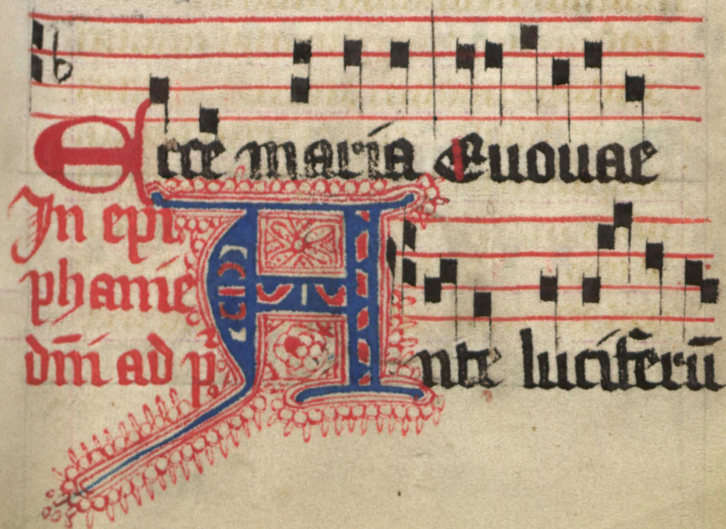 Ecce maria Euouae
In epi
phanie
dm̄i ad p̄
Ante luciferū